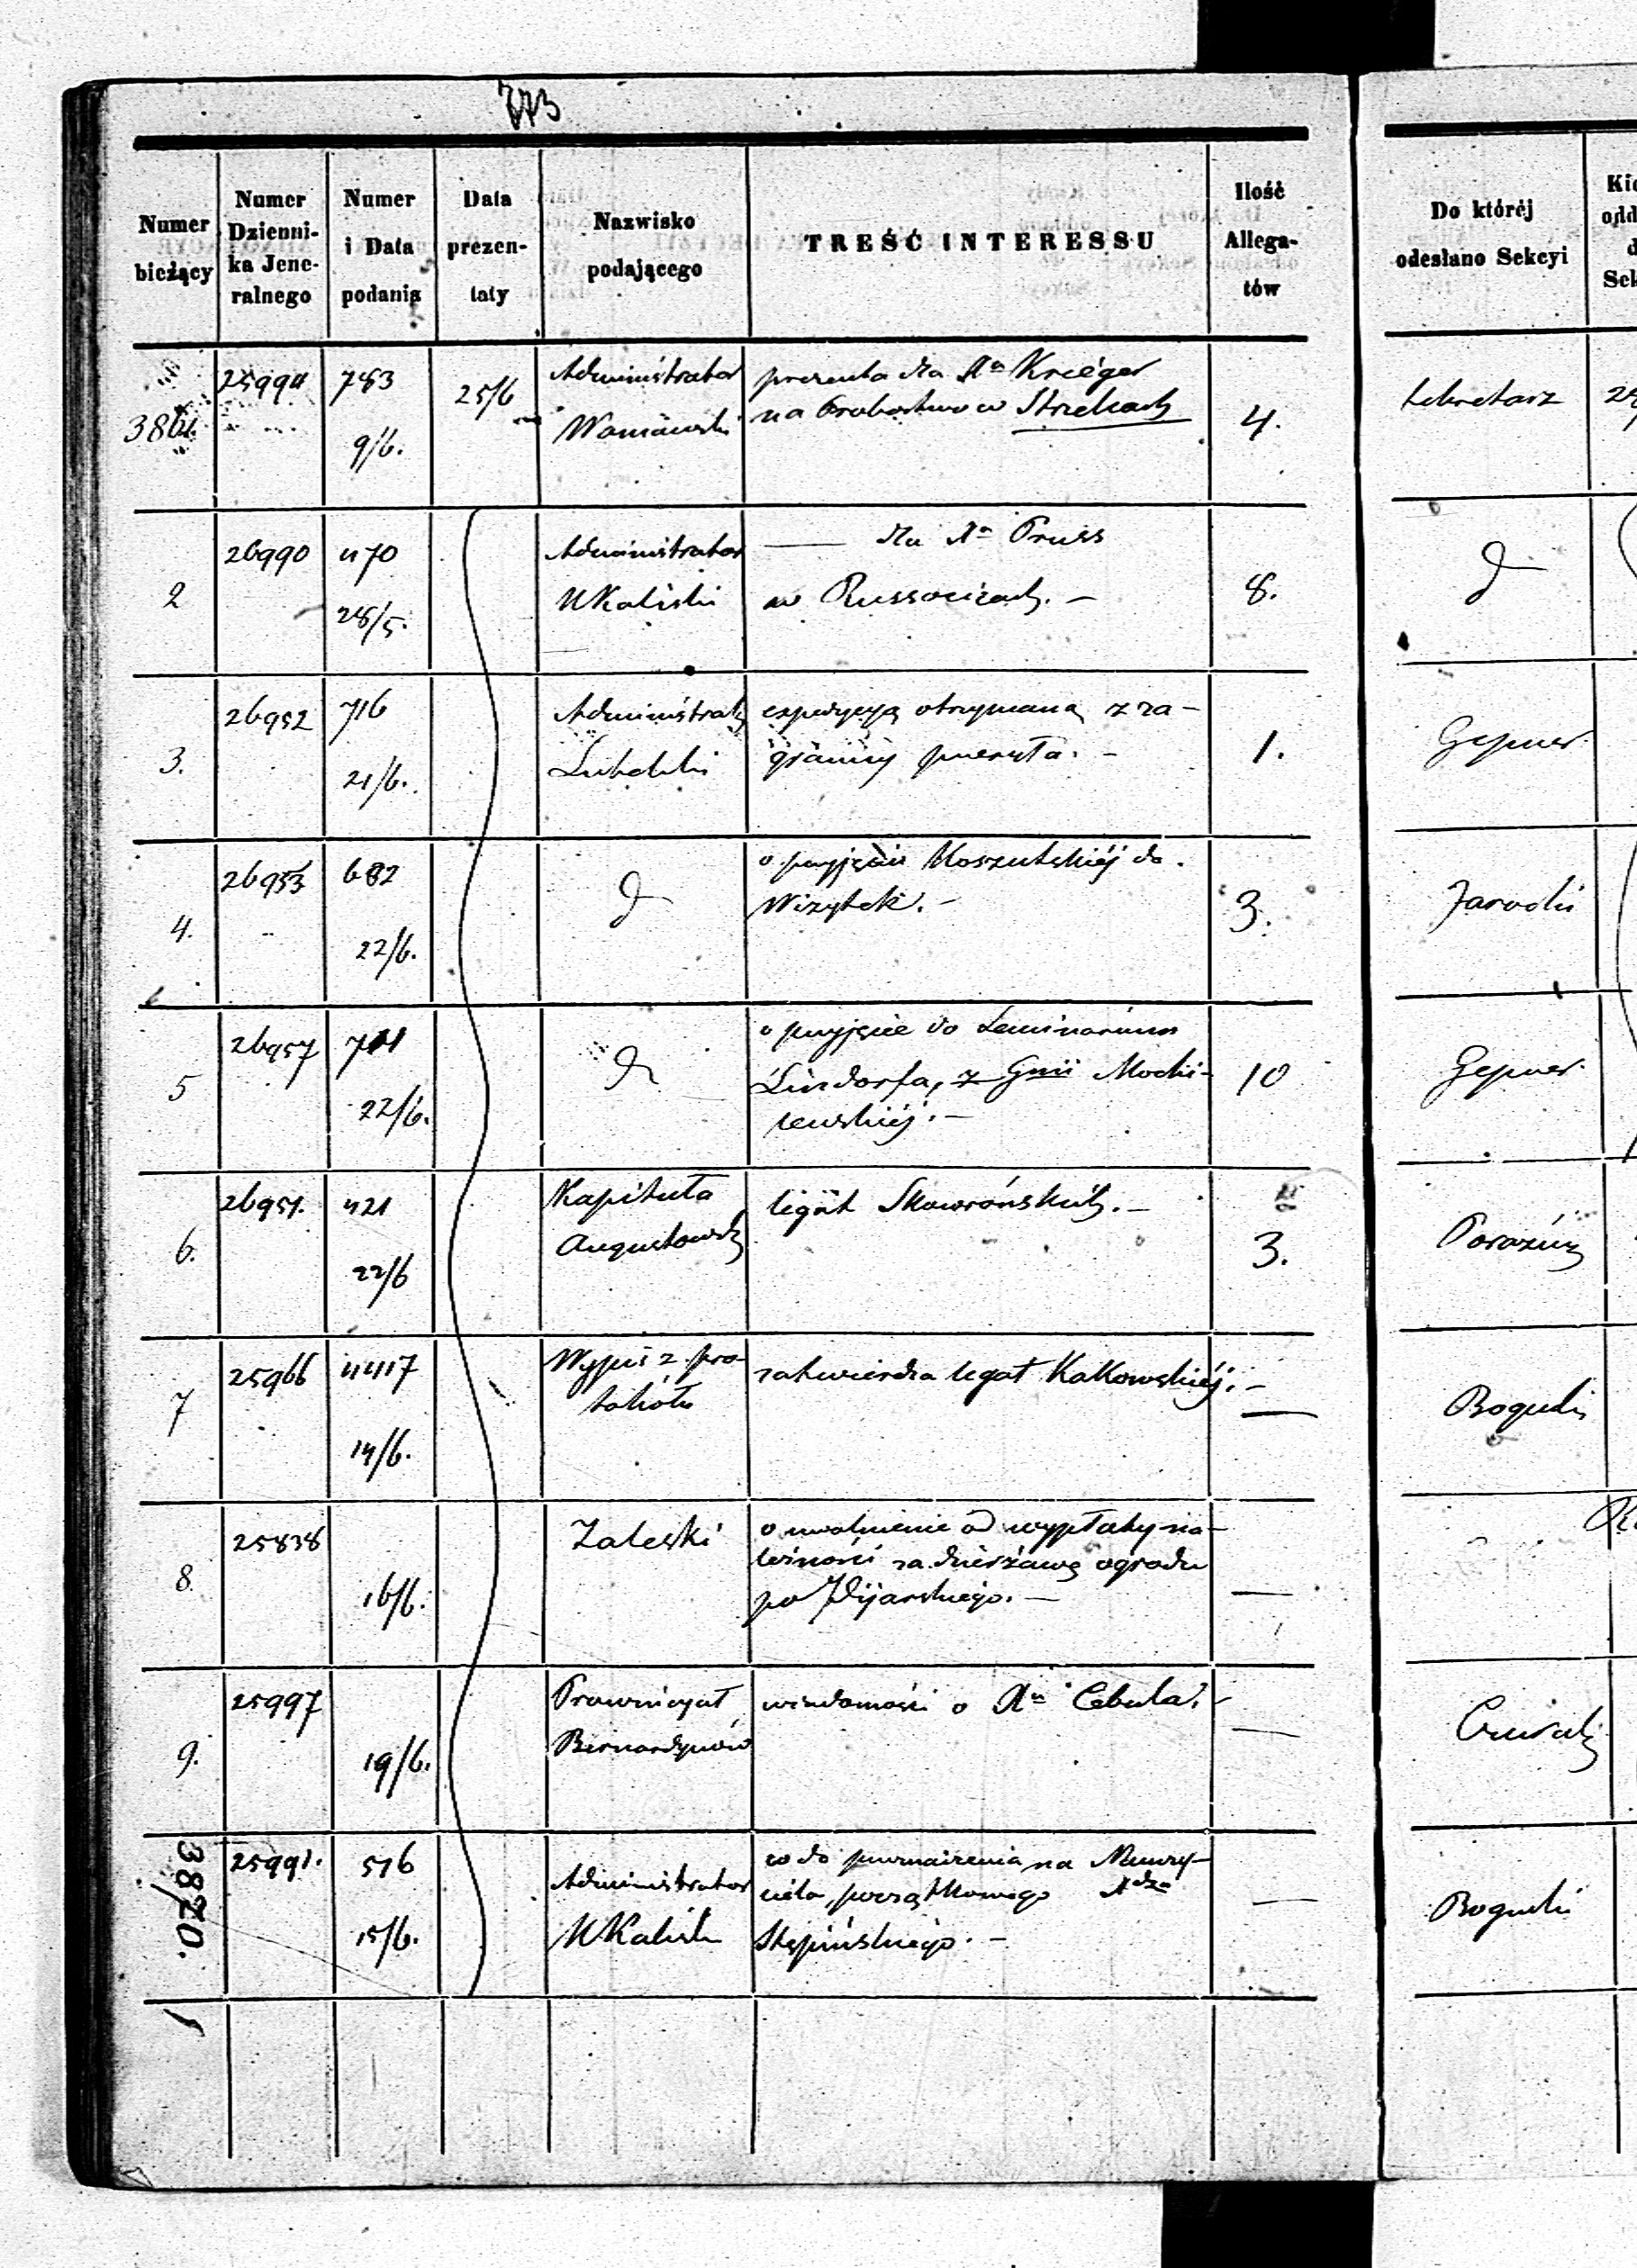 773
Numer bieżący
Numer Dzienni-ka Jene-ralnego
Numer i Data podania
Data prezen-taty
Nazwisko podającego
TREŚĆ INTERESSU
Ilość Allega-tów
Do któréj odesłano Sekcyi
3861. 25994 783 9/6. 25/6
Administrator
prezenta dla Xa Krieger
na Probostwo w
4.
Sekretarz
2 26990 470 28/5.
Administrator
WKaliski
— dla Xa Pruss
w Russocicach. —
8.
d
3. 26952 716 21/6.
Lubelski
expedycyą otrzymaną z za-
granicy przesyła. —
1.
Gepner.
4. 26953 682 22/6.
d
o przyjęcie Koszutskiéj do
Wizytek. —
3.
Jarocki
5 26957 711 22/6.
d
o przyjęcie do Seminarium
Lindorfa, z Gnii Modli-
10
Gepner.
6. 26951. 421 22/6
Kapituła
Augustowska
legat Skowrońskich. —
3.
7 25966 4417 14/6.
Wypis z pro-
tokółu
zatwierdza legat Kalkowskiéj. —
—
Bogucki
8. 25838 16/6.
Zaleski
o uwolnienie od wypłaty na-
leżności za dzierżawę ogrodu
po
—
9. 25997 19/6.
Prowincyał
Bernardynów
wiadomość o Xu Cebula. —
—
3870. 25991. 516 15/6.
Administrator
WKaliski
co do przeznaczenia na Nauczy-
ciela początkowego Xdza
Stępińskiego. —
—
Bogucki